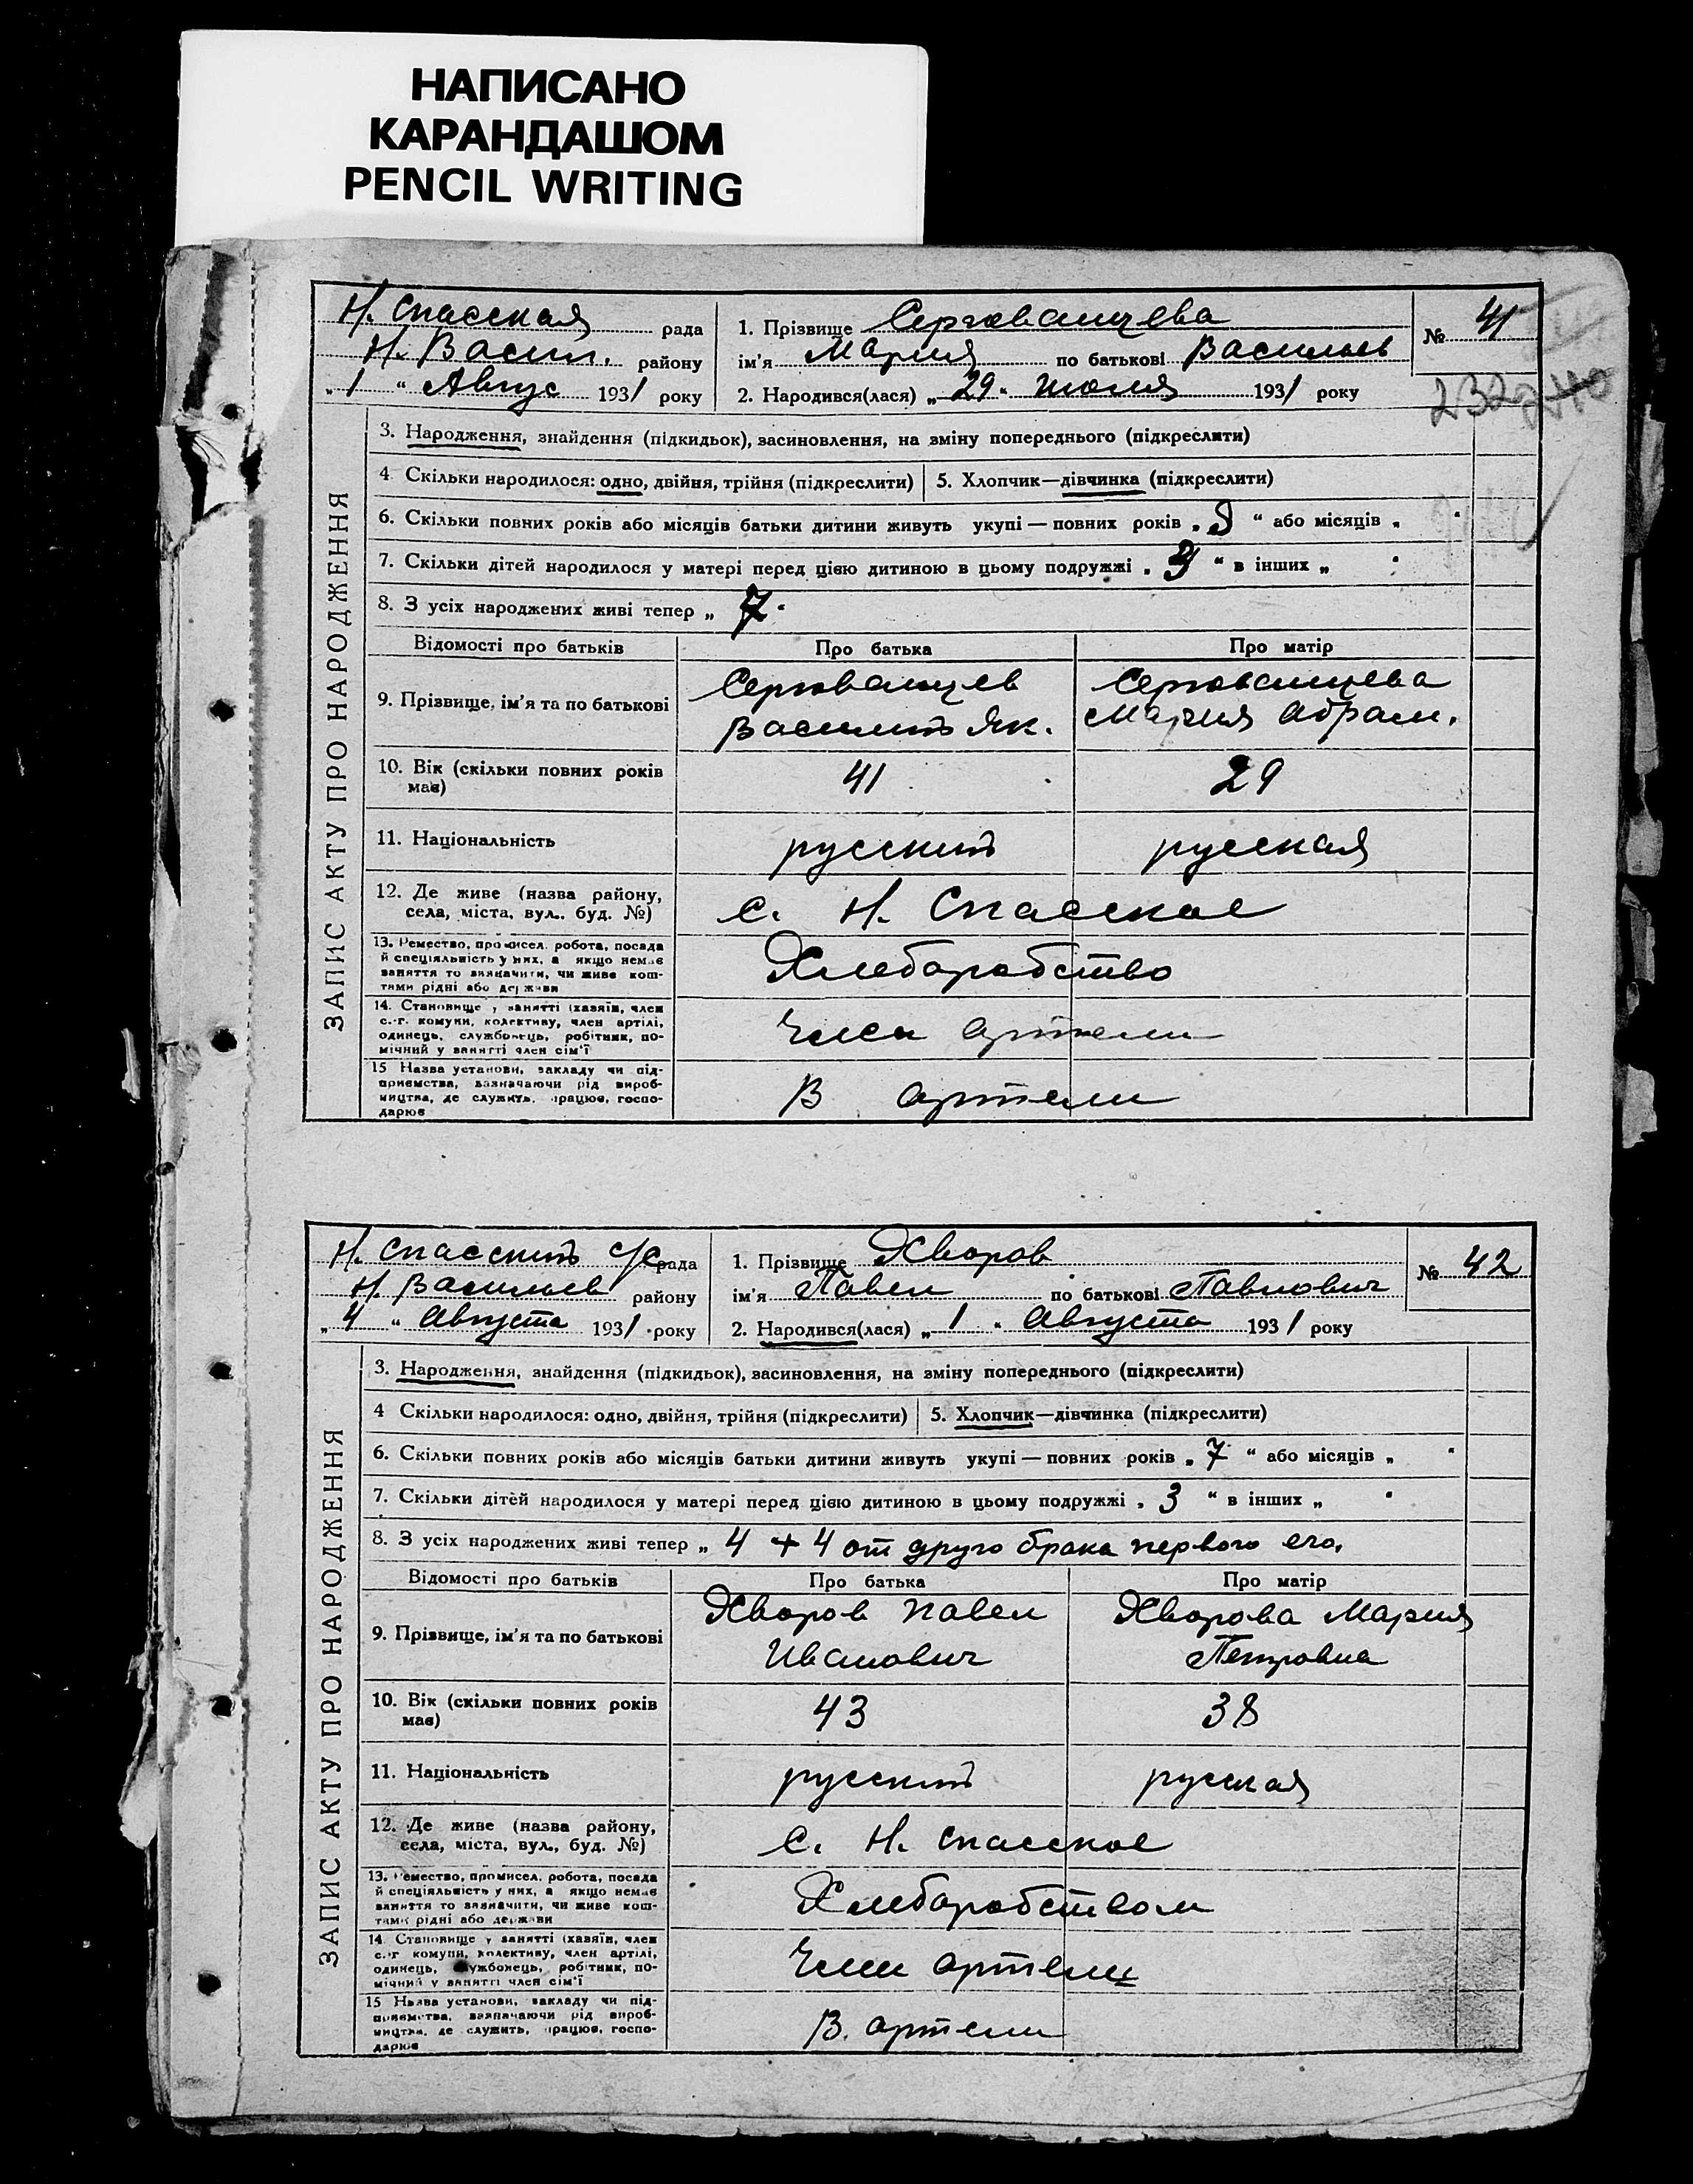 НАПИСАНО
КАРАНДАШОМ
PENCIL WRITING
Н. Спасская рада
Н. Васил. району
„1“ Авгус 1931 року
1. Прізвище Сергованцева
ім'я Мария по батькові Васильев
2. Народився(лася) „29“ июля 1931 року
№ 41
232
ЗАПИС АКТУ ПРО НАРОДЖЕННЯ
3. Народження, знайдення (підкидьок), засиновлення, на зміну попереднього (підкреслити)
4. Скільки народилося: одно, двійня, трійня (підкреслити)
5. Хлопчик—дівчинка (підкреслити)
6. Скільки повних років або місяців батьки дитини живуть укупі — повних років „ “ або місяців „ “
7. Скільки дітей народилося у матері перед цією дитиною в цьому подружжі „ “ в інших „ “
8. З усіх народжених живі тепер „ 7 “
Відомості про батьків Про батька Про матір
9. Прізвище, ім'я та по батькові
Сергованцев
Василий Як.
Сергованцева
Мария Абрам.
10. Вік (скільки повних років має) 41 29
11. Національність русский русская
12. Де живе (назва району,
села, міста, вул., буд. №) с. Н. Спасское
13. Ремество, промисел, робота, посада
й спеціяльність у них, а якщо немає
заняття то зазначити, чи живе кош-
тами рідні або держави
Хлеборобство
14. Становище у занятті (хазяїн, член
с.-г. комуни, колективу, член артілі,
одинець, службовець, робітник, по-
мічний у занятті член сім'ї
Член артели
15 Назва установи, закладу чи під-
приємства, зазначаючи рід вироб-
ництва, де служить, працює, госпо-
дарює
В артели
Н. Спасский с/с рада
Н. Васильев району
„4“ Августа 1931 року
1. Прізвище Хворов
ім'я Павел по батькові Павлович
2. Народився(лася) „1“ Августа 1931 року
№ 42
ЗАПИС АКТУ ПРО НАРОДЖЕННЯ
3. Народження, знайдення (підкидьок), засиновлення, на зміну попереднього (підкреслити)
4 Скільки народилося: одно, двійня, трійня (підкреслити)
5. Хлопчик—дівчинка (підкреслити)
6. Скільки повних років або місяців батьки дитини живуть укупі — повних років „ 7 “ або місяців „ “
7. Скільки дітей народилося у матері перед цією дитиною в цьому подружжі „ 3 “ в інших „ “
8. З усіх народжених живі тепер „ 4 + 4 от друго брака первого его.
Відомості про батьків Про батька Про матір
9. Прізвище, ім'я та по батькові
Хворов Павел
Иванович
Хворова Мария
Петровна
10. Вік (скільки повних років має) 43 38
11. Національність русский русская
12. Де живе (назва району,
села, міста, вул., буд. №) с. Н. Спасское
13. Ремество, промисел, робота, посада
й спеціяльність у них, а якщо немає
заняття то зазначити, чи живе кош-
тами рідні або держави
Хлеборобством
14. Становище у занятті (хазяїн, член
с.-г комуни, колективу, член артілі,
одинець, службовець, робітник, по-
мічний у занятті член сім'ї
Член артели
15 Назва установи, закладу чи під-
приємства, зазначаючи рід вироб-
ництва, де служить, працює, госпо-
дарює
В. артели